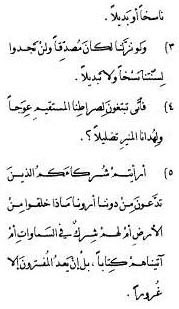 ناسخاً أو بديلاً .
٣) ولو نزلنا لكان مصدقاً ولن تجدوا
لسنتنا نسخاً ولا تبديلاً .
٤) فأنى تبتغون لصراطنا المستقيم عوجاً
ولهدانا المنير تضليلاً ؟ .
٥) أرأيتم شركاءكم الذين
تدعون من دوننا أرونا ماذا خلقوا من
الأرض أم لهم شرك في السماوات أم
آتيناهم كتاباً ، بل إن يعد المفترون إلا
غروراً .